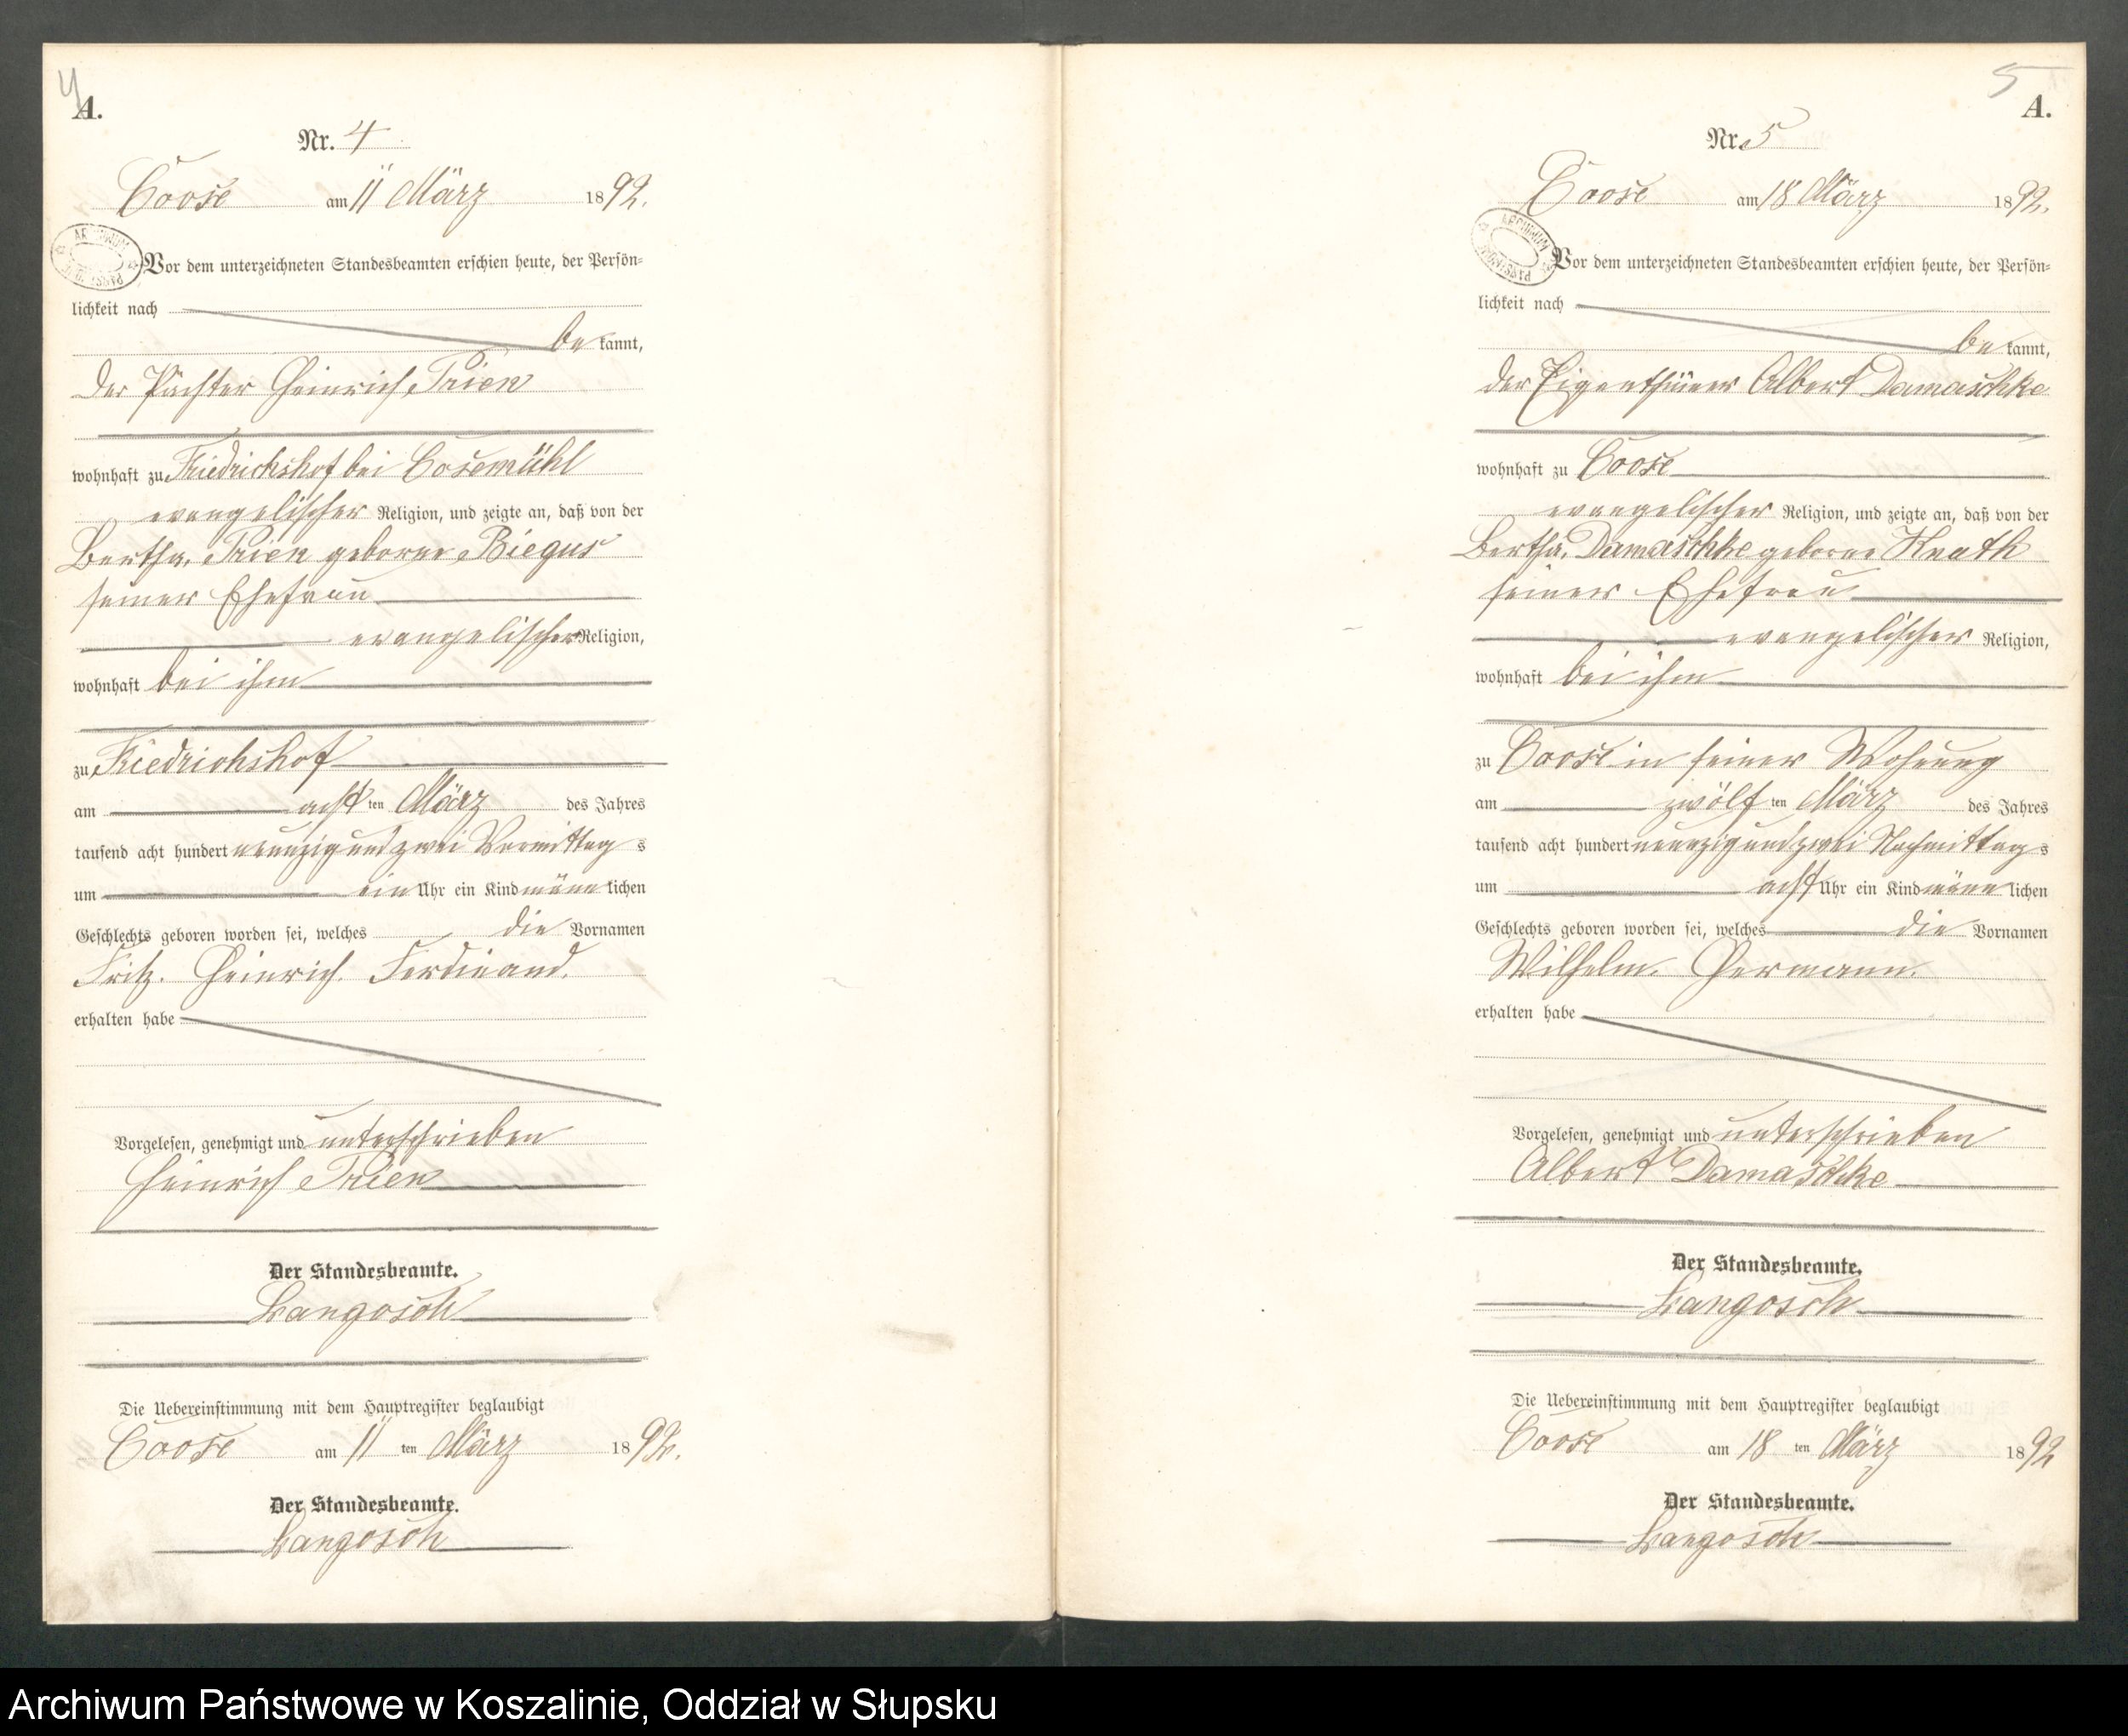 4
A.
Nr. 4
Coose am 11 März 1892.
Vor dem unterzeichneten Standesbeamten erschien heute, der Persön-
lichkeit nach
be kannt,
der Pächter Heinrich Prien
wohnhaft zu Friedrichshof bei Cosemühl
evangelischer Religion, und zeigte an, daß von der
Bertha, Prien geborne Biegus
seiner Ehefrau
evangelischer Religion,
wohnhaft bei ihm
zu Friedrichshof
am acht ten März des Jahres
tausend acht hundert neunzig und zwei Vormittag s
um ein Uhr ein Kind männ lichen
Geschlechts geboren worden sei, welches die Vornamen
Fritz. Heinrich. Ferdinand.
erhalten habe
Vorgelesen, genehmigt und unterschrieben
Heinrich Prien
Der Standesbeamte.
Langosch
Die Uebereinstimmung mit dem Hauptregister beglaubigt
Coose am 11 ten März 1892.
Der Standesbeamte.
Langosch
5
A.
Nr. 5
Coose am 18 März 1892.
Vor dem unterzeichneten Standesbeamten erschien heute, der Persön-
lichkeit nach
be kannt,
der Eigenthümer Albert Damaschke
wohnhaft zu Coose
evangelischer Religion, und zeigte an, daß von der
Bertha, Damaschke geborne Knath
seiner Ehefrau
evangelischer Religion,
wohnhaft bei ihm
zu Coose in seiner Wohnung
am zwölf ten März des Jahres
tausend acht hundert neunzig und zwei Nachmittag s
um acht Uhr ein Kind männ lichen
Geschlechts geboren worden sei, welches die Vornamen
Wilhelm. Hermann.
erhalten habe
Vorgelesen, genehmigt und unterschrieben
Albert Damaschke
Der Standesbeamte.
Langosch
Die Uebereinstimmung mit dem Hauptregister beglaubigt
Coose am 18 ten März 1892
Der Standesbeamte.
Langosch
Archiwum Państwowe w Koszalinie, Oddział w Słupsku